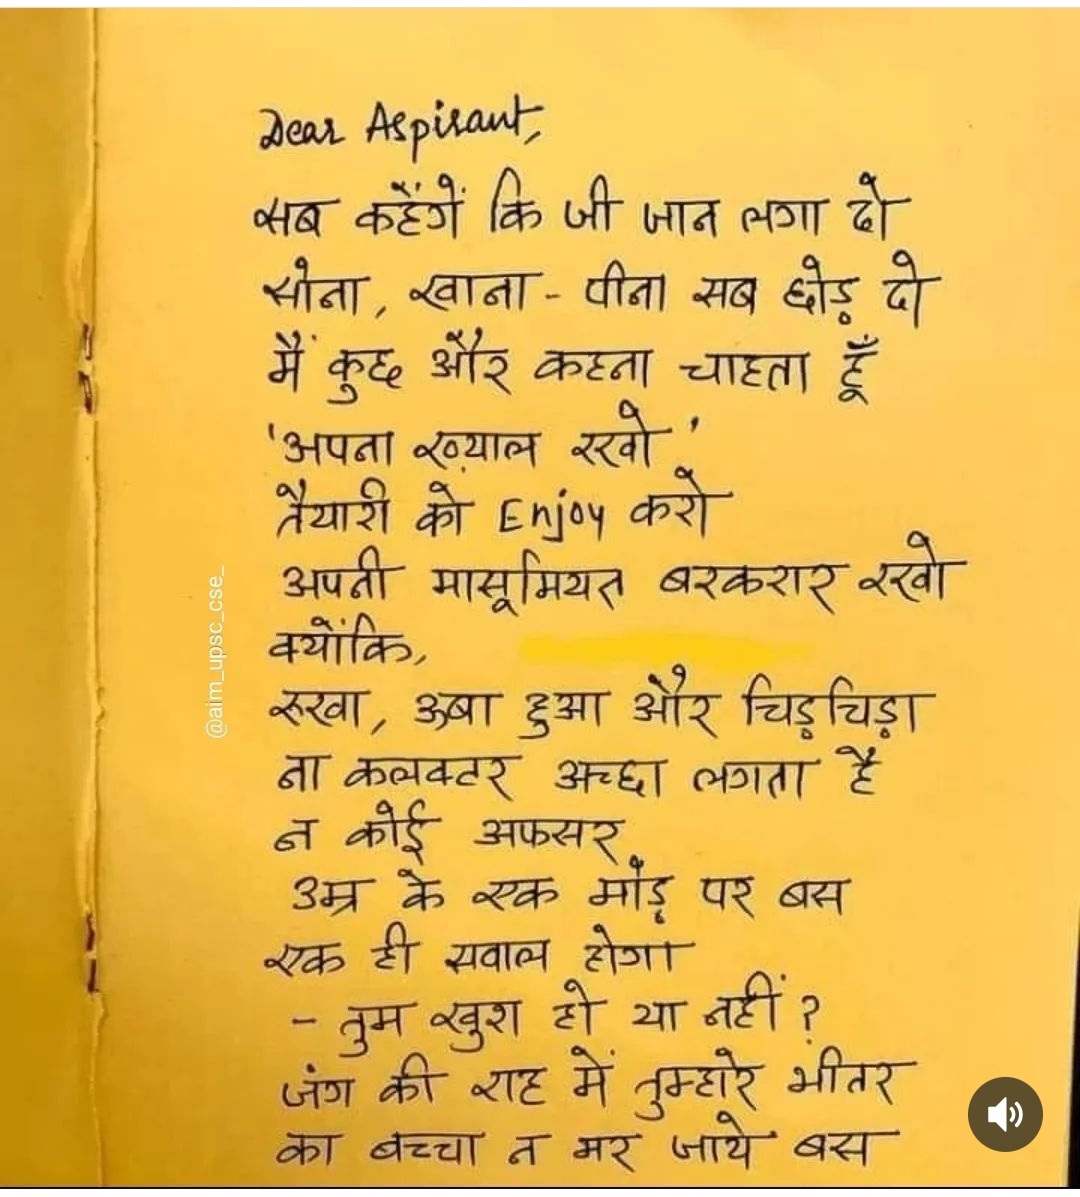 Dear Aspirant,
सब कहेंगें कि जी जान लगा दो
सोना, खाना - पीना सब छोड़ दो
मैं कुछ और कहना चाहता हूँ
'अपना ख़्याल रखो'
तैयारी को Enjoy करो
अपनी मासूमियत बरकरार रखो
क्योंकि,
रूखा, ऊबा हुआ और चिड़चिड़ा
ना कलक्टर अच्छा लगता है
न कोई अफसर
उम्र के एक मोड़ पर बस
एक ही सवाल होगा
- तुम खुश हो या नहीं ?
जंग की राह में तुम्हारे भीतर
का बच्चा न मर जाये बस
@aim_upsc_cse_